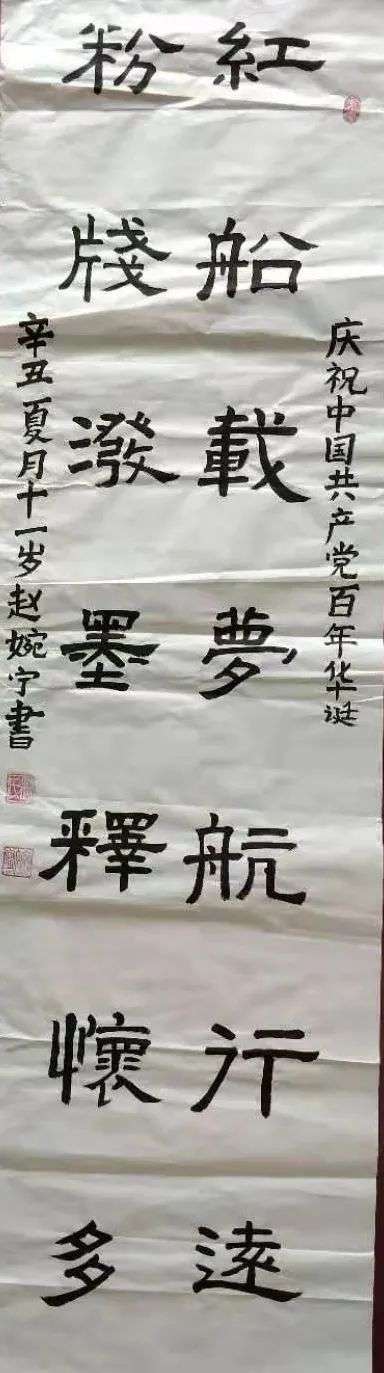 庆祝中国共产党百年华诞
紅船載夢航行遠
粉牋潑墨釋懷多
辛丑夏月十一岁赵婉宁書